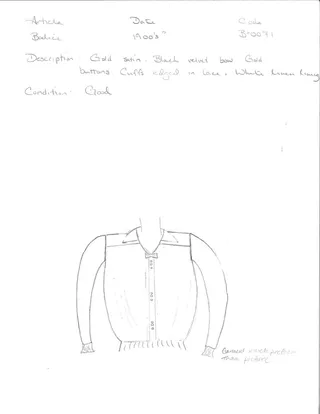 Article Date Code
Bodice 1900's B:0071
Description Gold satin. Black velvet bow Gold
buttons. Cuffs edged in lace. White linen lining
Condition: Good
Garment much prettier
than picture